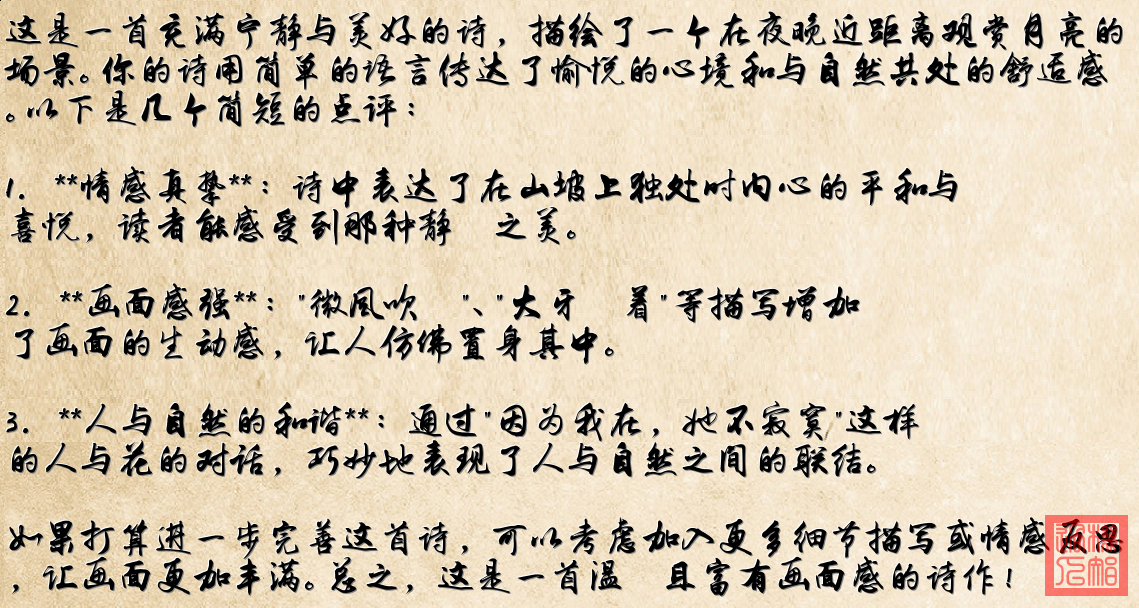 这是一首充满宁静与美好的诗，描绘了一个在夜晚近距离观赏月亮的
场景。你的诗用简单的语言传达了愉悦的心境和与自然共处的舒适感
。以下是几个简短的点评：
1. **情感真挚**：诗中表达了在山坡上独处时内心的平和与
喜悦，读者能感受到那种静 之美。
2. **画面感强**："微风吹 "、"大牙 着"等描写增加
了画面的生动感，让人仿佛置身其中。
3. **人与自然的和谐**：通过"因为我在，她不寂寞"这样
的人与花的对话，巧妙地表现了人与自然之间的联结。
如果打算进一步完善这首诗，可以考虑加入更多细节描写或情感反思
，让画面更加丰满。总之，这是一首温 且富有画面感的诗作！